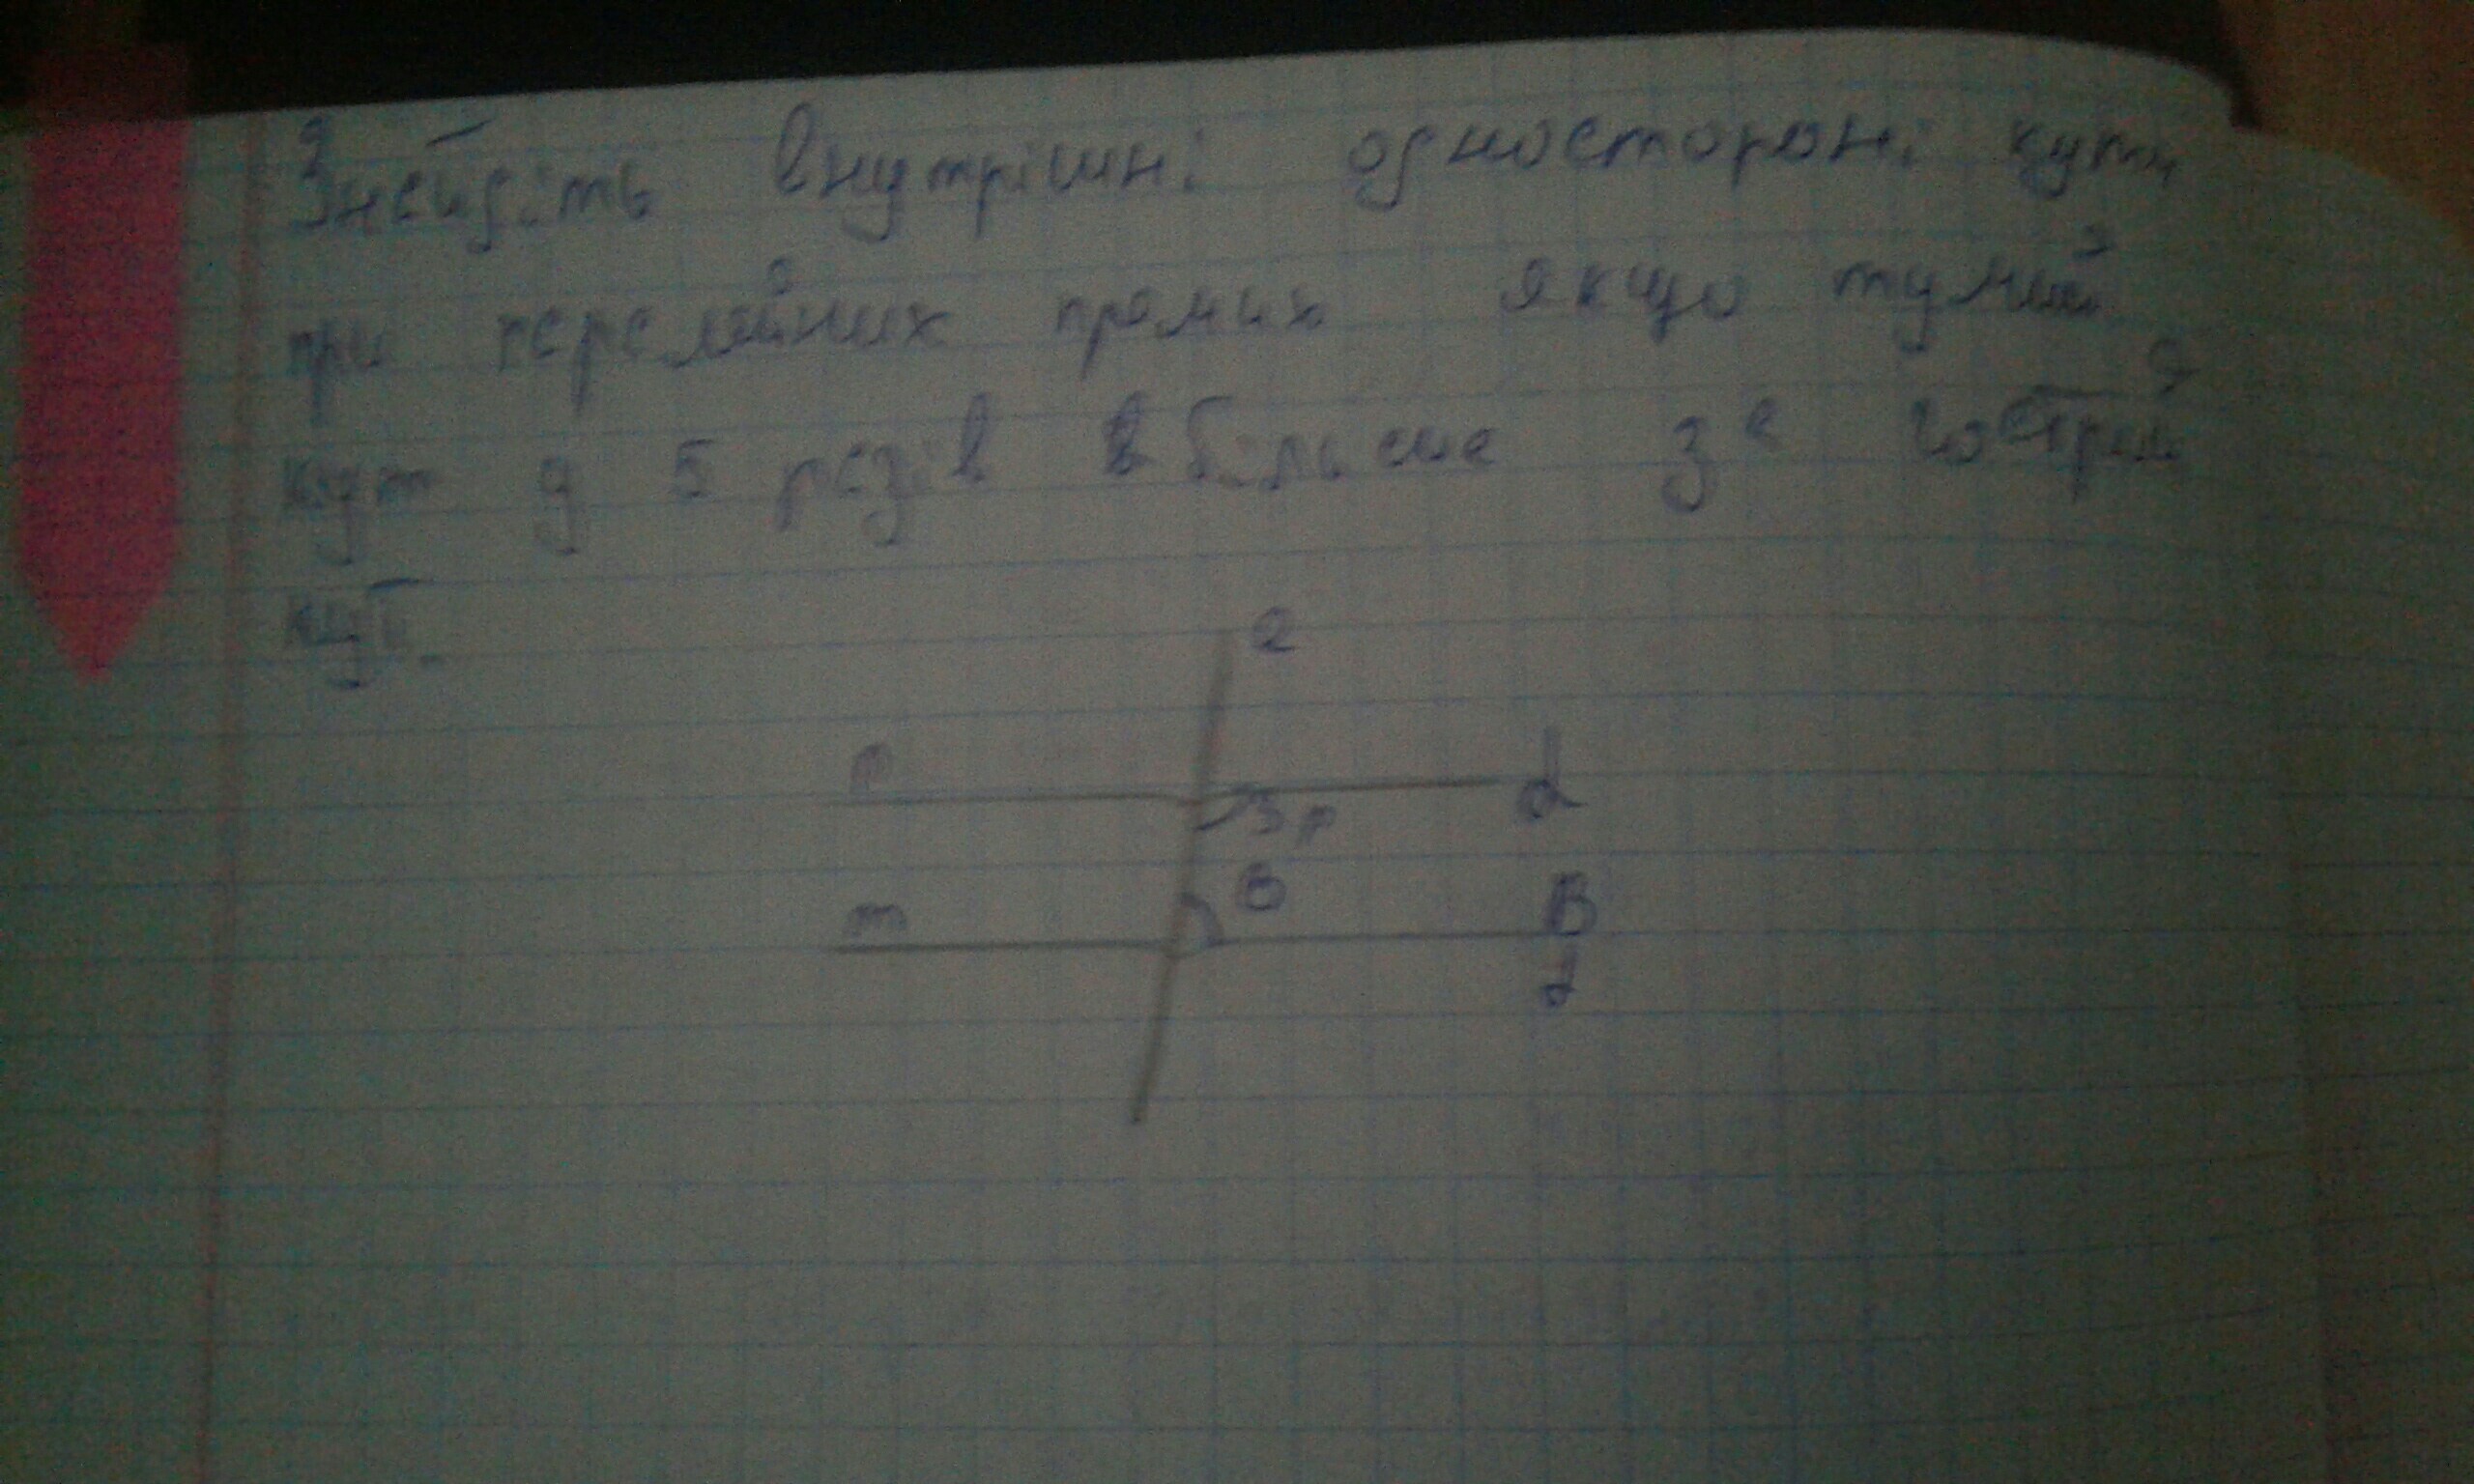 Знайдіть внутрішні односторонні кути
при паралельних прямих якщо тупий
кут у 5 разів більше за гострий
кут.
a
n
d
3
m
B
d